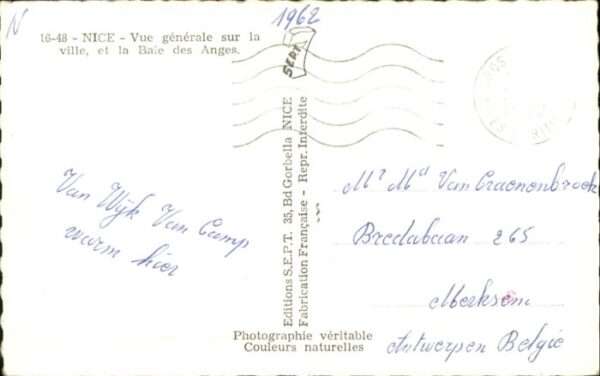 N
1962
16-48 - NICE - Vue générale sur la
ville, et la Baie des Anges.
SEPT
Editions S.E.P.T. 35, Bd Gorbella NICE
Fabrication Française - Repr. Interdite
Van Wijk Van Camp
warm hier
Mr Md Van Craenenbroek
Bredabaan 265
Merksem
Antwerpen België
Photographie véritable
Couleurs naturelles